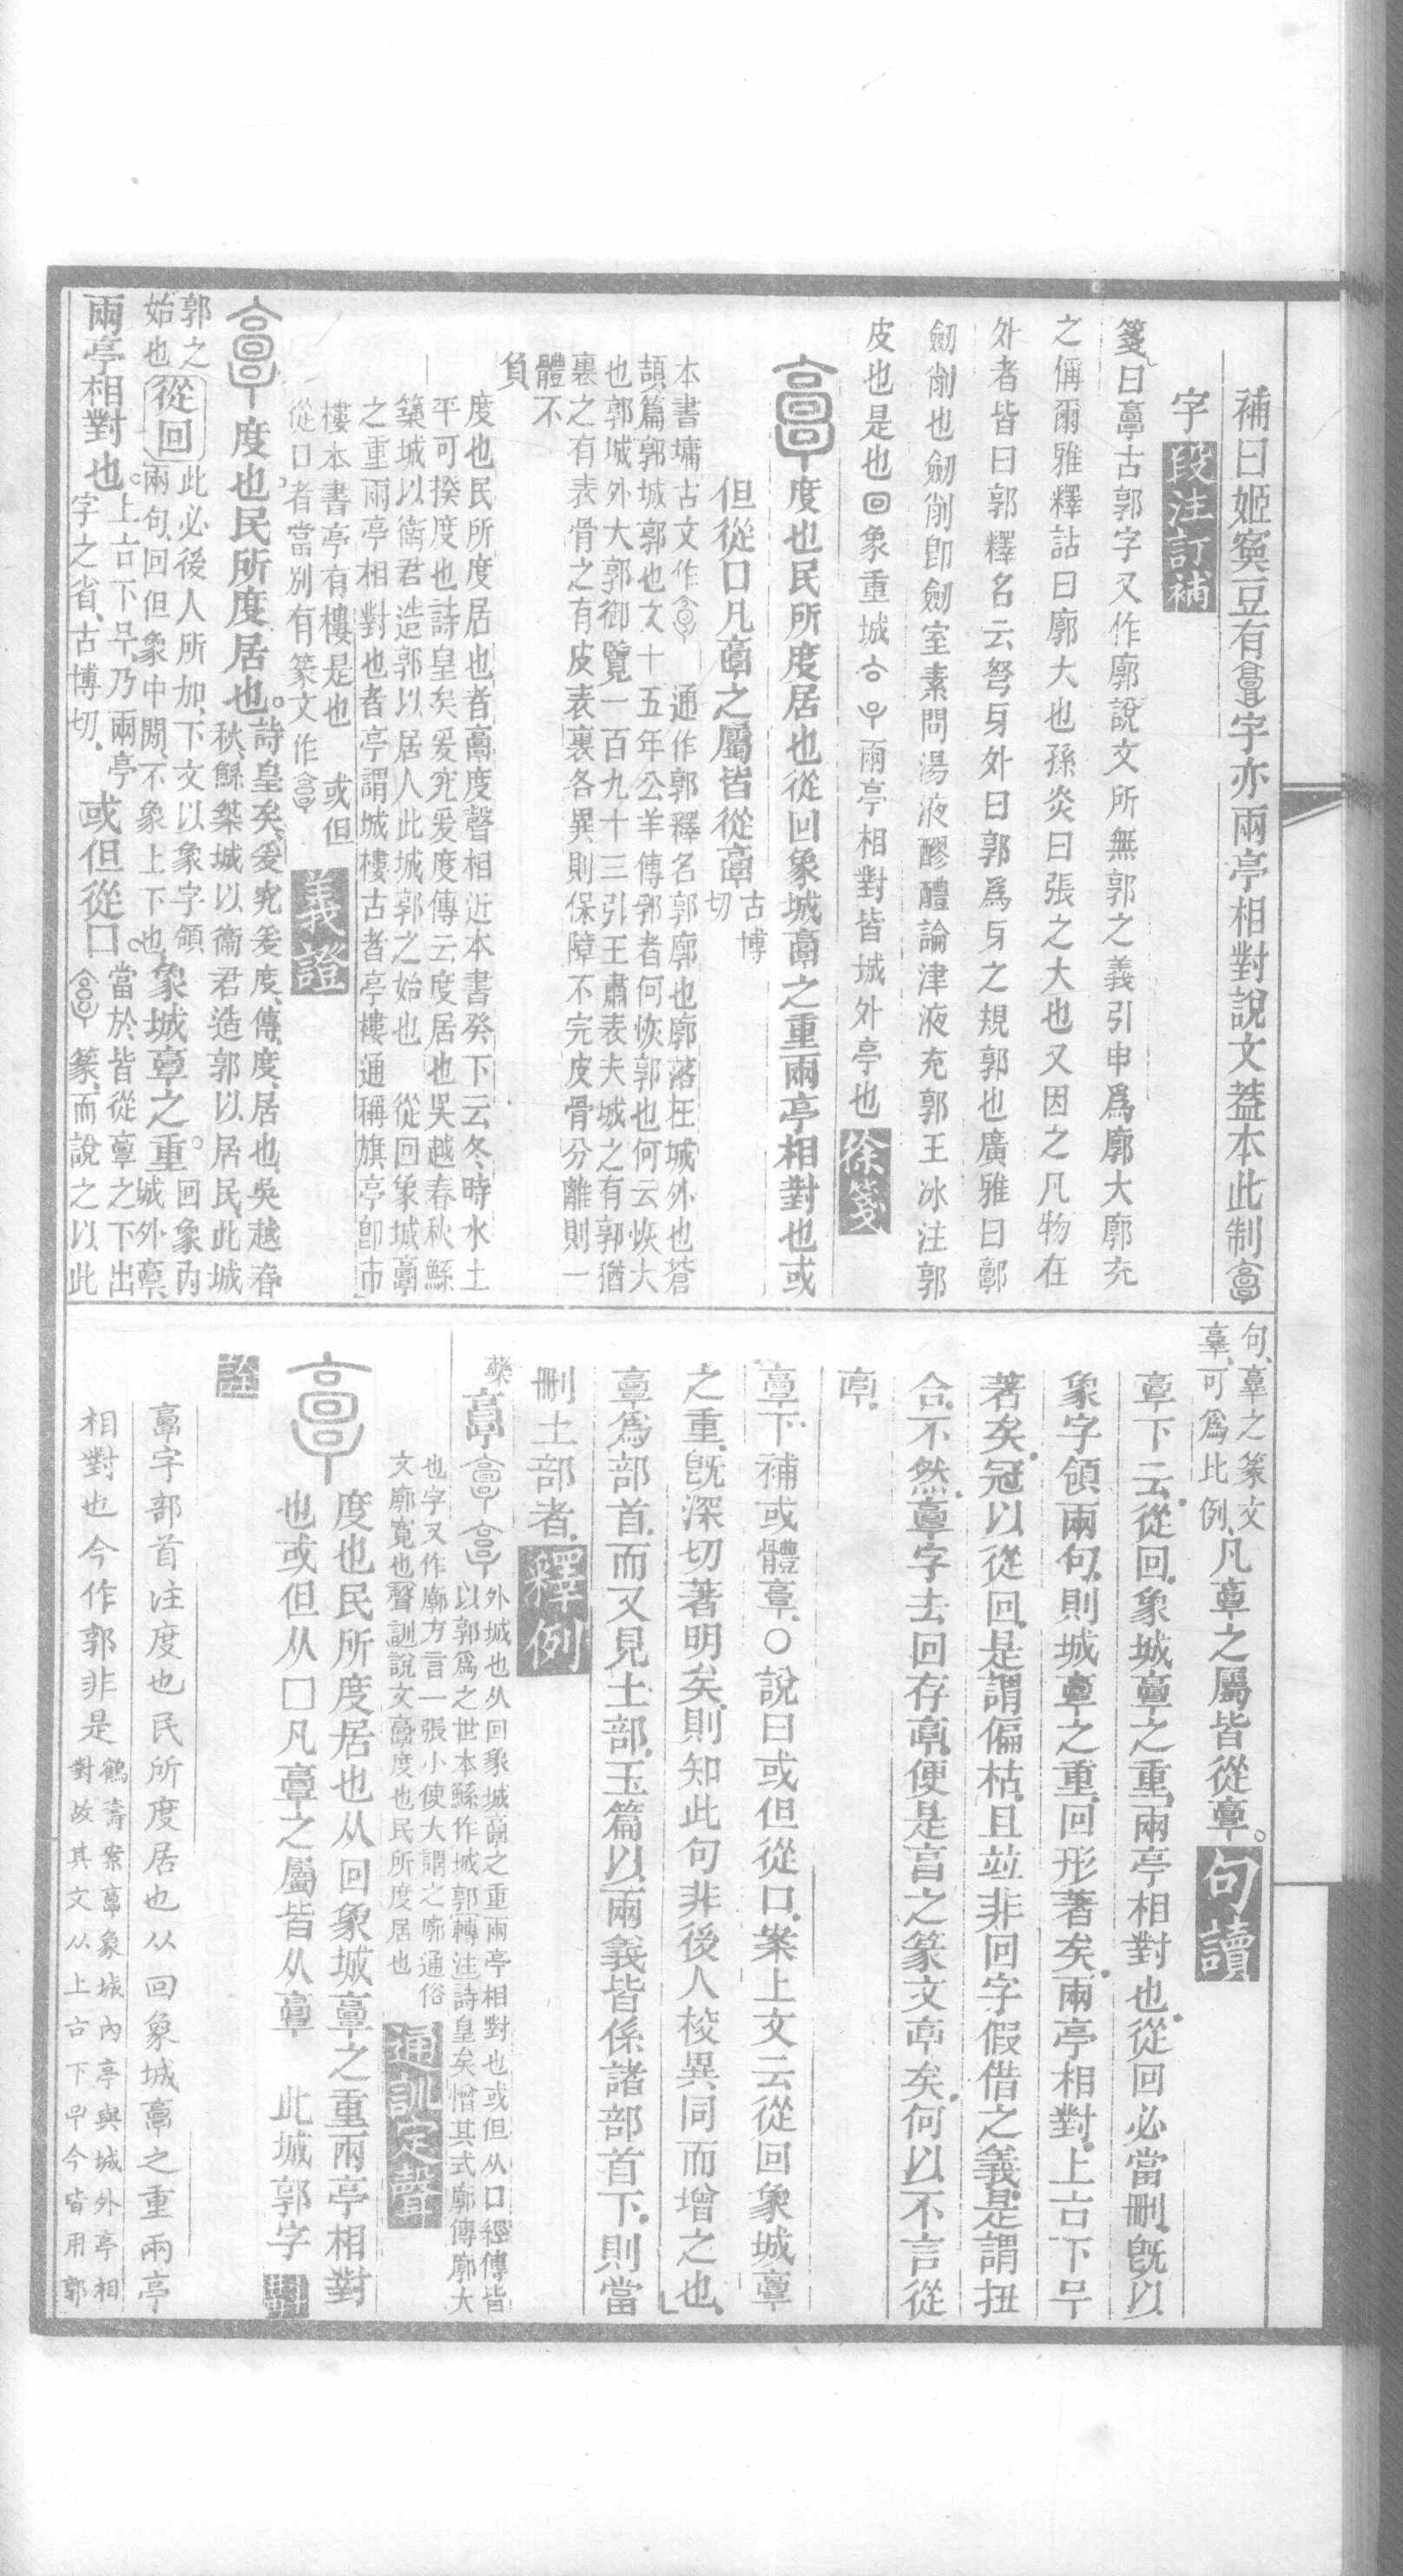 補曰姬寏豆有字亦兩亭相對說文蓋本此制
字段注訂補
箋曰𩫏古郭字又作廓說文所無郭之義引申爲廓大廓充
之偁爾雅釋詁曰廓大也孫炎曰張之大也又因之凡物在
外者皆曰郭釋名云弩牙外曰郭爲牙之規郭也廣雅曰
劒削也劒削卽劒室素問湯液醪醴論津液充郭王冰注郭
皮也是也回象重城兩亭相對皆城外亭也徐箋
度也民所度居也從回象城𩫏之重兩亭相對也或
但從口凡𩫏之屬皆從𩫏古博切
本書墉古文作 通作郭釋名郭廓也廓落在城外也蒼
頡篇郭城郭也文十五年公羊傳郛者何恢郭也何云恢大
也郭城外大郭御覽一百九十三引王肅表夫城之有郭猶
裏之有表骨之有皮表裏各異則保障不完皮骨分離則一
體不
負
度也民所度居也者𩫏度聲相近本書癸下云冬時水土
平可揆度也詩皇矣爰究爰度傳云度居也吳越春秋鯀
築城以衞君造郭以居人此城郭之始也 從回象城𩫏
之重兩亭相對也者亭謂城樓古者亭樓通稱旗亭卽市
樓本書亭有樓是也 或但
從口者當別有篆文作
義證
度也民所度居也。詩皇矣、爰究爰度、傳、度、居也、吳越春
秋、鯀築城以衞君造郭以居民此城
郭之
始也
從回此必後人所加、下文以象字領
兩句、回但象中閒、不象上下也、象城𩫏之重。回象內
城外𩫏、
兩亭相對也。上下乃兩亭
字之省、古博切、或但從口。當於皆從𩫏之下出
篆、而說之以此
句、𩫏之篆文
可爲比例、凡𩫏之屬皆從𩫏。句讀
𩫏下云、從回、象城𩫏之重、兩亭相對也、從回必當刪、旣以
象字領兩句、則城𩫏之重、回形著矣、兩亭相對、上下
著矣、冠以從回、是謂偏枯、且竝非回字假借之義、是謂扭
合、不然、𩫏字去回存、便是亯之篆文矣、何以不言從
𩫏下、補或體𩫏、○說曰或但從口、案上文云從回象城𩫏
之重、旣深切著明矣、則知此句非後人校異同而增之也、
𩫏爲部首、而又見土部、玉篇以兩義皆係諸部首下、則當
刪土部者、釋例
外城也从回象城𩫏之重兩亭相對也或但从口經傳皆
以郭爲之世本鯀作城郭轉注詩皇矣憎其式廓傳廓大
也字又作廓方言一張小使大謂之廓通俗
文廓寬也聲訓說文𩫏度也民所度居也
通訓定聲
度也民所度居也从回象城𩫏之重兩亭相對
也或但从口凡𩫏之屬皆从𩫏 此城郭字
詮
𩫏字部首注度也民所度居也从回象城𩫏之重兩亭
相對也今作郭非是鶴壽案𩫏象城內亭與城外亭相
對故其文从上下今皆用郭